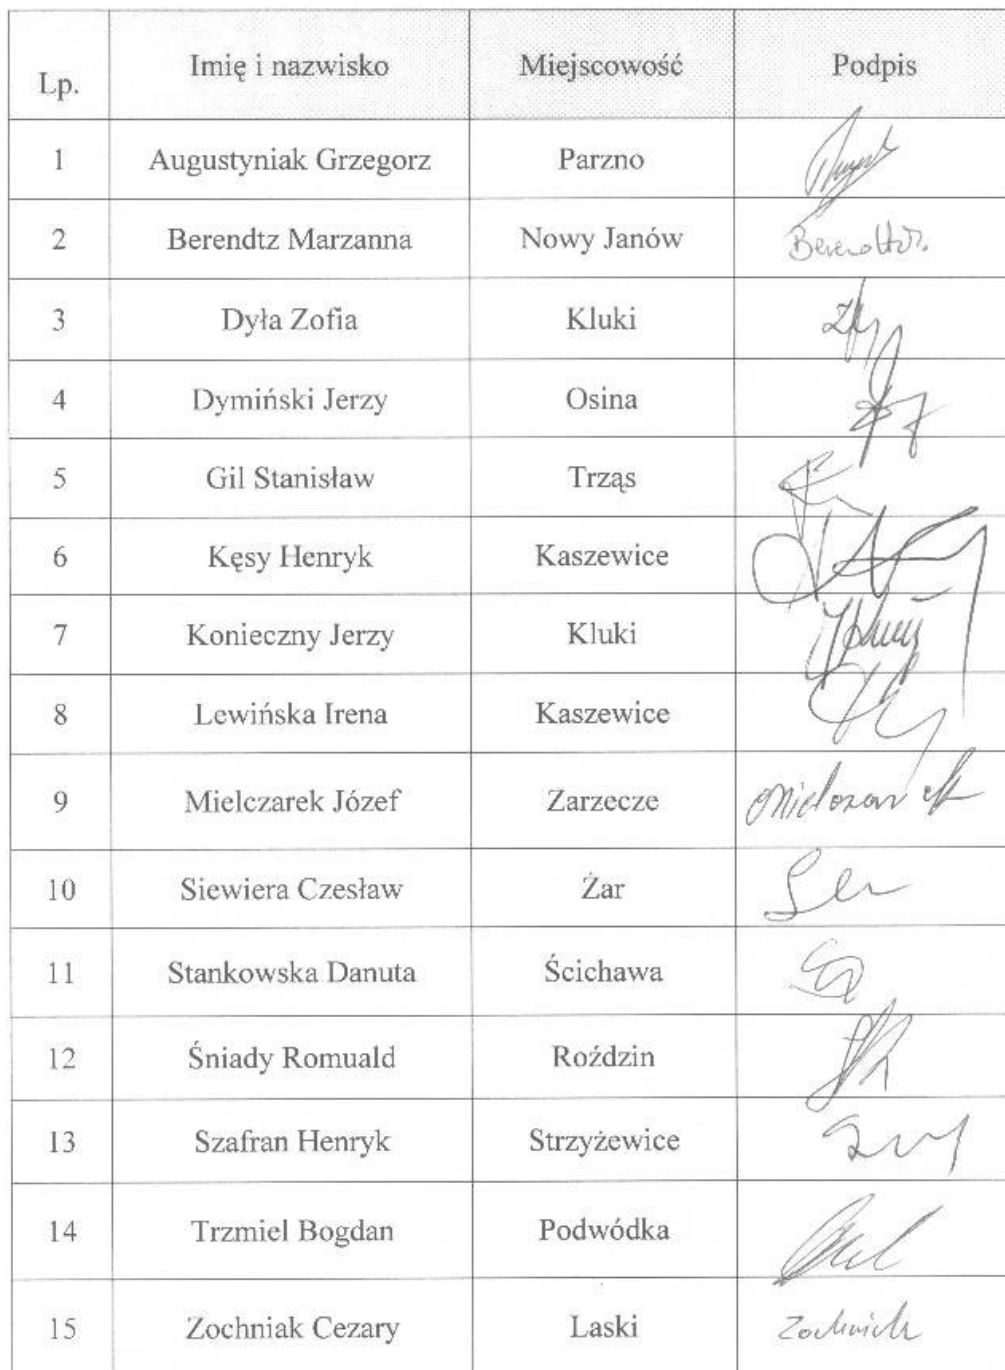 Lp. Imię i nazwisko Miejscowość Podpis
1 Augustyniak Grzegorz Parzno
2 Berendtz Marzanna Nowy Janów
3 Dyła Zofia Kluki
4 Dymiński Jerzy Osina
5 Gil Stanisław Trząs
6 Kęsy Henryk Kaszewice
7 Konieczny Jerzy Kluki
8 Lewińska Irena Kaszewice
9 Mielczarek Józef Zarzecze
10 Siewiera Czesław Żar
11 Stankowska Danuta Ścichawa
12 Śniady Romuald Roździn
13 Szafran Henryk Strzyżewice
14 Trzmiel Bogdan Podwódka
15 Zochniak Cezary Laski